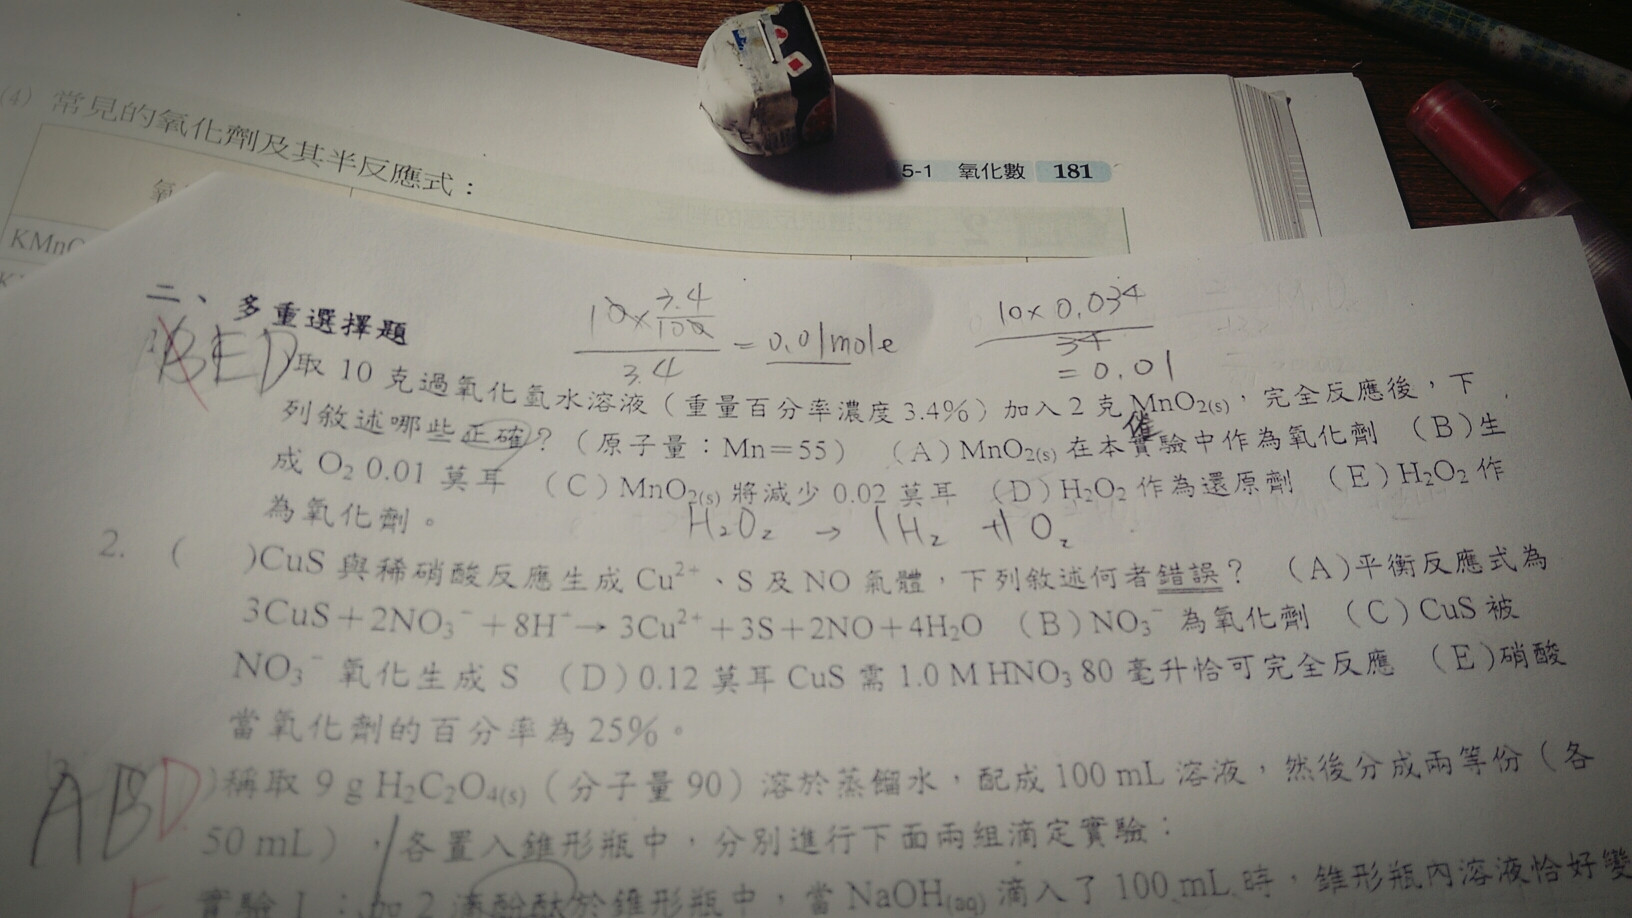 (4) 常見的氧化劑及其半反應式：
5-1 氧化數 181
KMnO
二、多重選擇題
10×3.4/100 / 3.4 = 0.01mole
10×0.034 / 34 = 0.01
BED )取 10 克過氧化氫水溶液（重量百分率濃度 3.4%）加入 2 克 MnO₂(s)，完全反應後，下
列敘述哪些正確？（原子量：Mn＝55） （A）MnO₂(s) 在本實驗中作為氧化劑 （B）生
催
成 O₂ 0.01 莫耳 （C）MnO₂(s) 將減少 0.02 莫耳 （D）H₂O₂ 作為還原劑 （E）H₂O₂ 作
為氧化劑。
H₂O₂ → 1H₂ + 1O₂
2. ( )CuS 與稀硝酸反應生成 Cu²⁺、S 及 NO 氣體，下列敘述何者錯誤？ （A）平衡反應式為
3CuS＋2NO₃⁻＋8H⁺→ 3Cu²⁺＋3S＋2NO＋4H₂O （B）NO₃⁻ 為氧化劑 （C）CuS 被
NO₃⁻ 氧化生成 S （D）0.12 莫耳 CuS 需 1.0 M HNO₃ 80 毫升恰可完全反應 （E）硝酸
當氧化劑的百分率為 25%。
ABD )稱取 9 g H₂C₂O₄(s)（分子量 90）溶於蒸餾水，配成 100 mL 溶液，然後分成兩等份（各
50 mL），各置入錐形瓶中，分別進行下面兩組滴定實驗：
實驗 1：加 2 滴酚酞於錐形瓶中，當 NaOH(aq) 滴入了 100 mL 時，錐形瓶內溶液恰好變